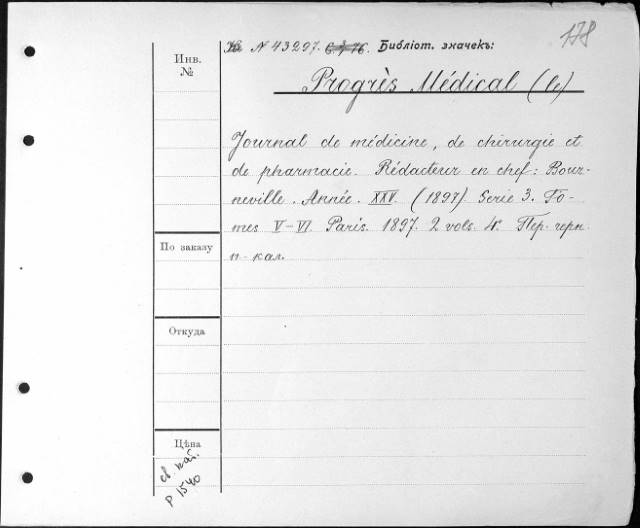 178
№ 43297. Библіот. значекъ:
Инв.
№
Progrès Médical (le)
Journal de médicine, de chirurgie et
de pharmacie. Rédacteur en chef: Bour-
neville. Année. XXV. (1897) Serie 3. To-
mes V–VI. Paris. 1897. 2 vols. 4º. Пер. черн.
н кал.
По заказу
Откуда
Цѣна
св. кат.
P 1540